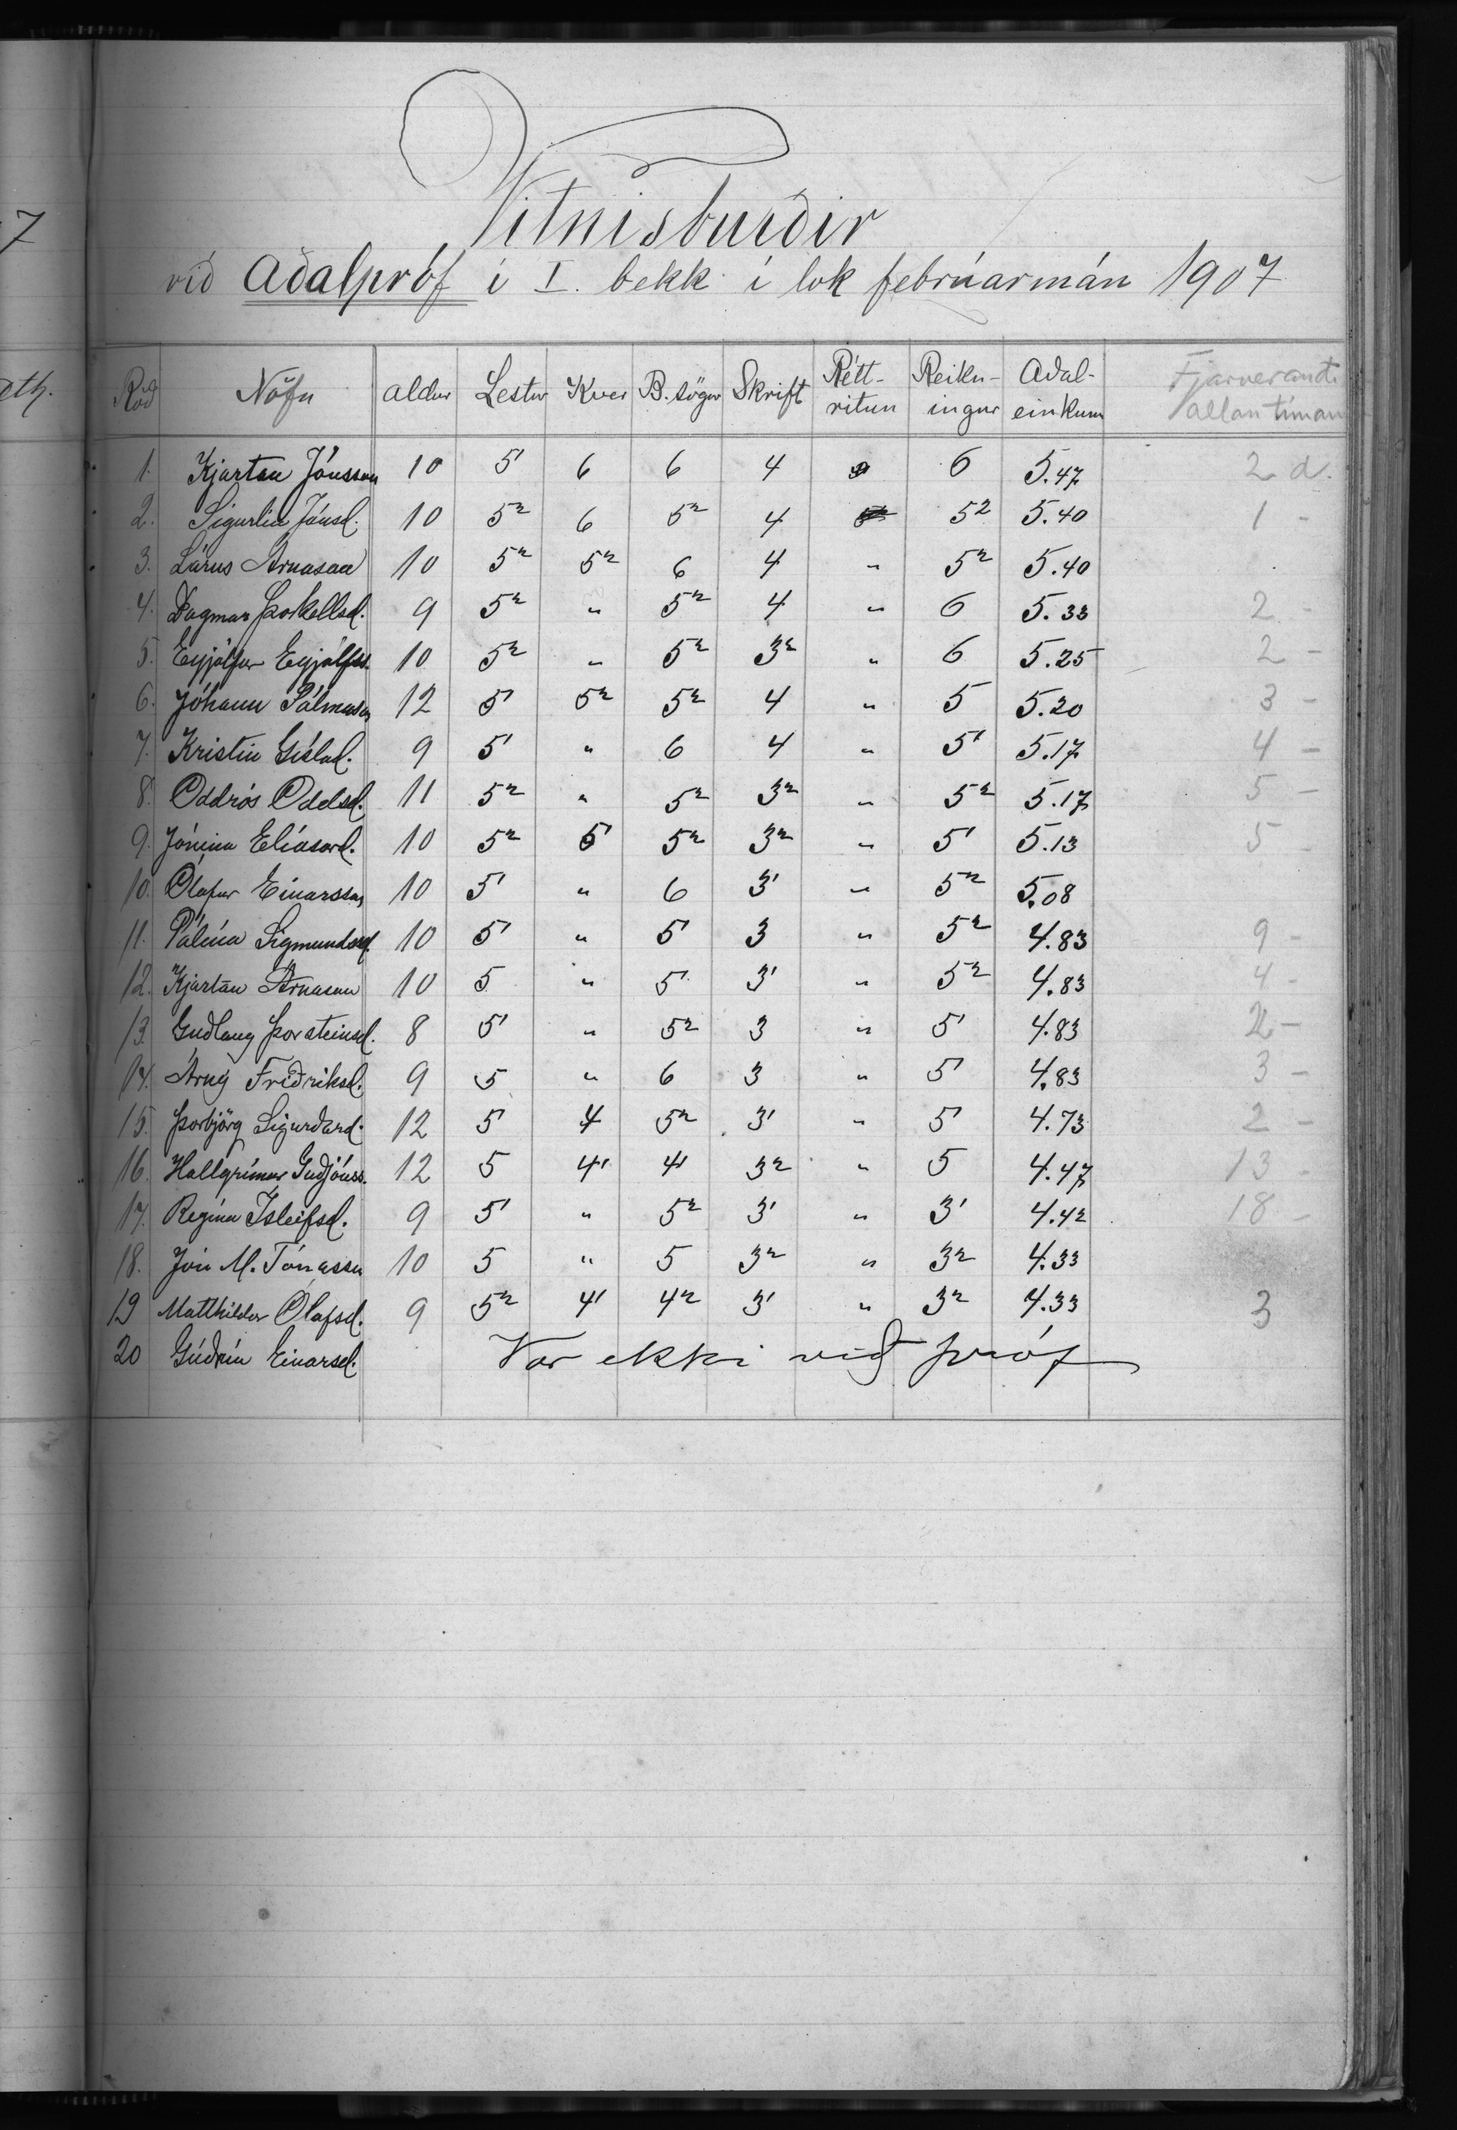 7
Vitnisburðir
við Aðalpróf í I. bekk í lok febrúarmán 1907
Röð Nöfn aldur Lestur Kver B. sögur Skrift Rétt-ritun Reikn-ingur Aðal-einkunn Fjarverandi allan tíman
1. Kjartan Jónsson 10 5' 6 6 4 6 5.47 2 d.
2. Sigurlín Jónsd. 10 5² 6 5² 4 5² 5.40 1 -
3. Lárus Árnason 10 5² 5² 6 4 " 5² 5.40
4. Dagmar Þorkellsd. 9 5² " 5² 4 " 6 5.33 2 -
5. Eyjólfur Eyjólfss. 10 5² " 5² 3² " 6 5.25 2 -
6. Jóhann Pálmason 12 5' 5² 5² 4 " 5 5.20 3 -
7. Kristín Gíslad. 9 5' " 6 4 " 5' 5.17 4 -
8. Oddrós Oddsd. 11 5² " 5² 3² " 5² 5.17 5 -
9. Jónína Elíasard. 10 5² 5' 5² 3² " 5' 5.13 5 -
10. Ólafur Einarsson 10 5' " 6 3' " 5² 5.08
11. Pálína Sigmundsd. 10 5' " 5' 3 " 5² 4.83 9 -
12. Kjartan Árnason 10 5 " 5' 3' " 5² 4.83 4 -
13. Guðlaug Þorsteinsd. 8 5' " 5² 3 " 5' 4.83 2 -
14. Árný Friðriksd. 9 5 " 6 3 " 5' 4.83 3 -
15. Þorbjörg Sigurðard. 12 5' 4 5² 3' " 5' 4.73 2 -
16. Hallgrímur Guðjónss. 12 5 4' 4' 3² " 5 4.47 13 -
17. Regína Ísleifsd. 9 5' " 5² 3' " 3' 4.42 18 -
18. Jón M. Jónasson 10 5 " 5 3² " 3² 4.33
19 Matthildur Ólafsd. 9 5² 4' 4² 3' " 3² 4.33 3
20 Guðrún Einarsd. Var ekki við próf